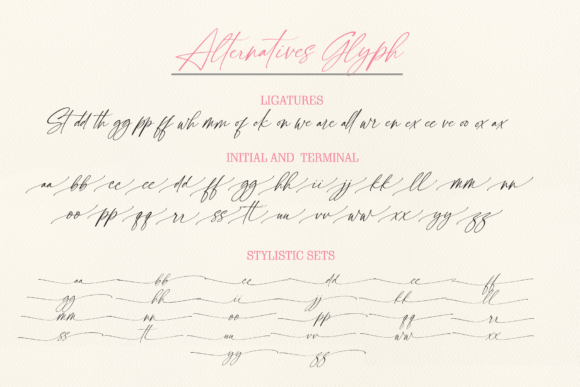 Alternatives Glyph
LIGATURES
St dd th gg pp ff wh mm of ok on we are all wr en ex ee ve oo ox ax
INITIAL AND TERMINAL
aa bb cc ee dd ff gg hh ii jj kk ll mm nn
oo pp qq rr ss tt uu vv ww xx yy zz
STYLISTIC SETS
aa bb cc dd ee ff
gg hh ii jj kk ll
mm nn oo pp qq rr
ss tt uu vv ww xx
yy zz